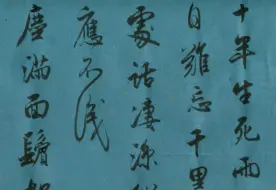 十年生死兩
自難忘千里
處話淒涼縱
應不識
塵滿面鬢如